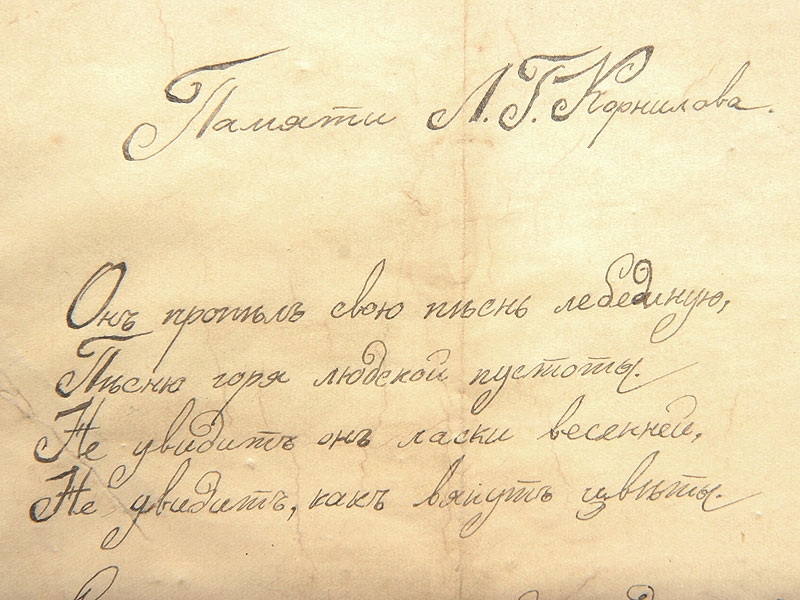 Памяти Л. Г. Корнилова.
Онъ пропѣлъ свою пѣснь лебединую,
Пѣсню горя людской пустоты.
Не увидитъ онъ ласки весенней,
Не увидитъ, какъ вянутъ цвѣты.